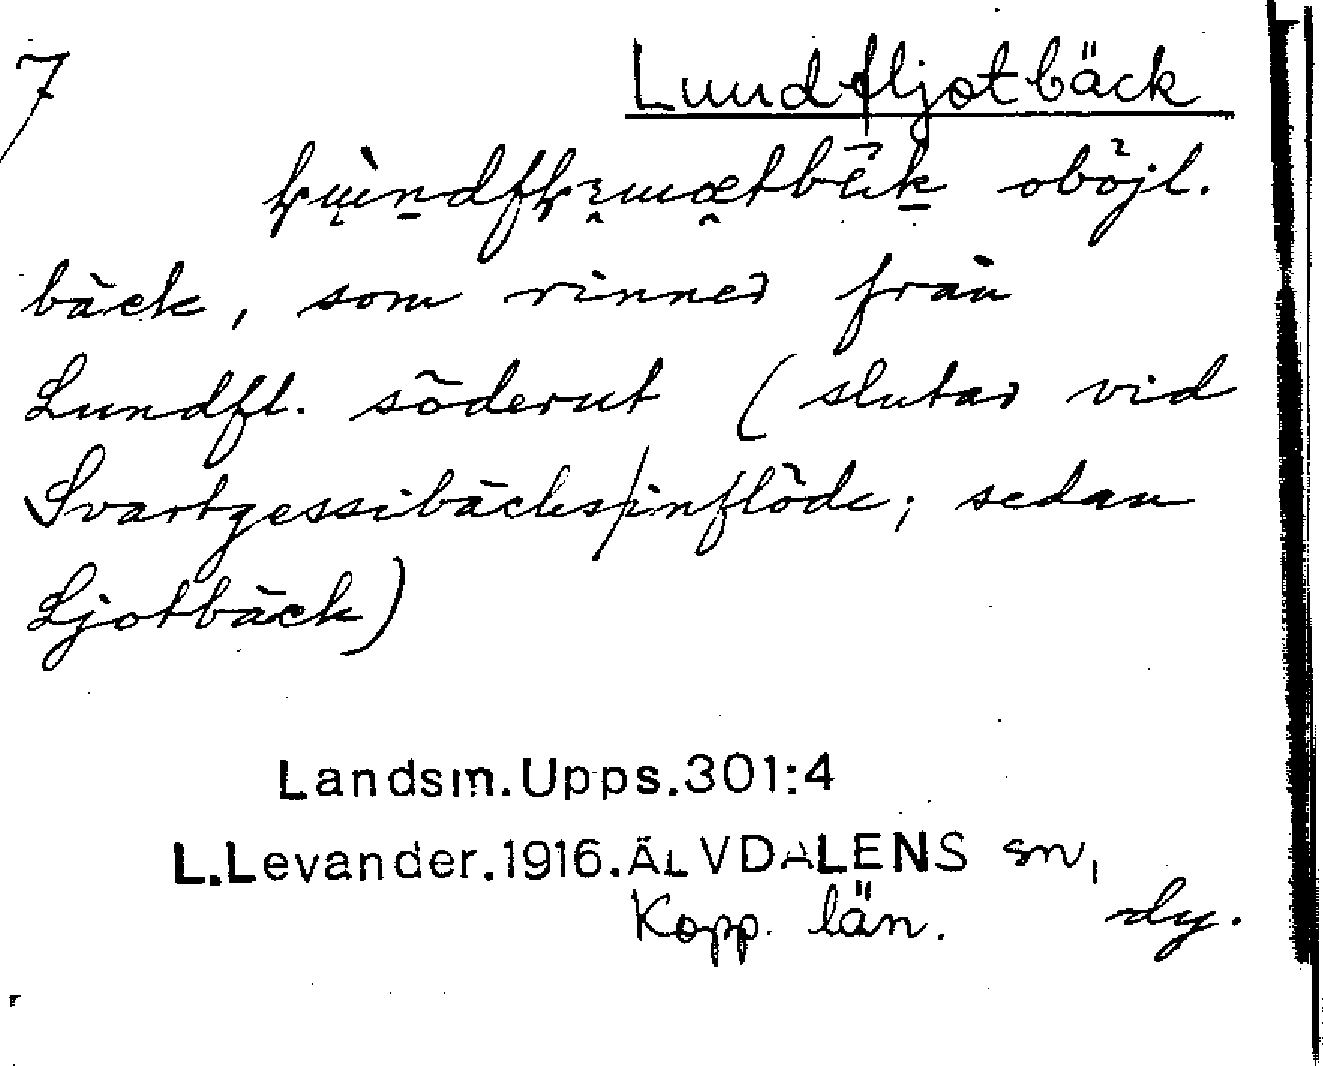 7
Lundfljotbäck
oböjl.
bäck, som rinner från
Lundfl. söderut (slutar vid
Svartgessibäcks/inflöde; sedan
Ljotbäck)
Landsm.Upps.301:4
L.Levander.1916.ÄLVDALENS sn,
Kopp. län. dy.